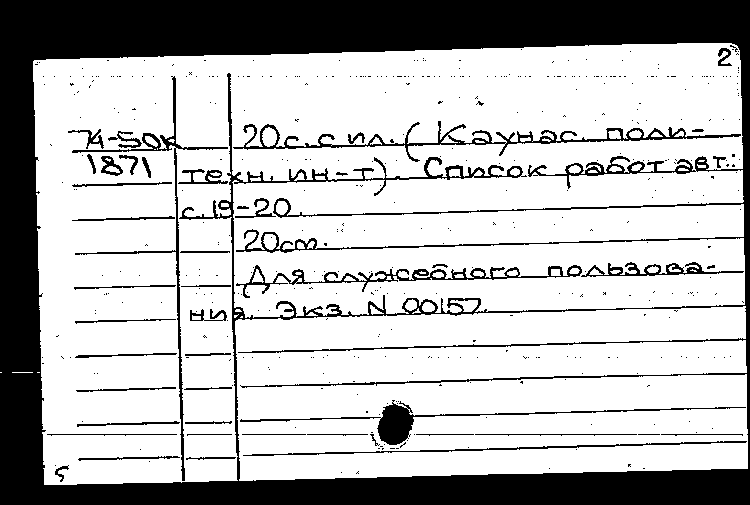 2
74-50к 20с. с ил. (Каунас. поли-
1871 техн. ин-т). Список работ авт.:
с. 19-20.
20см.
Для служебного пользова-
ния. Экз. N 00157.
5